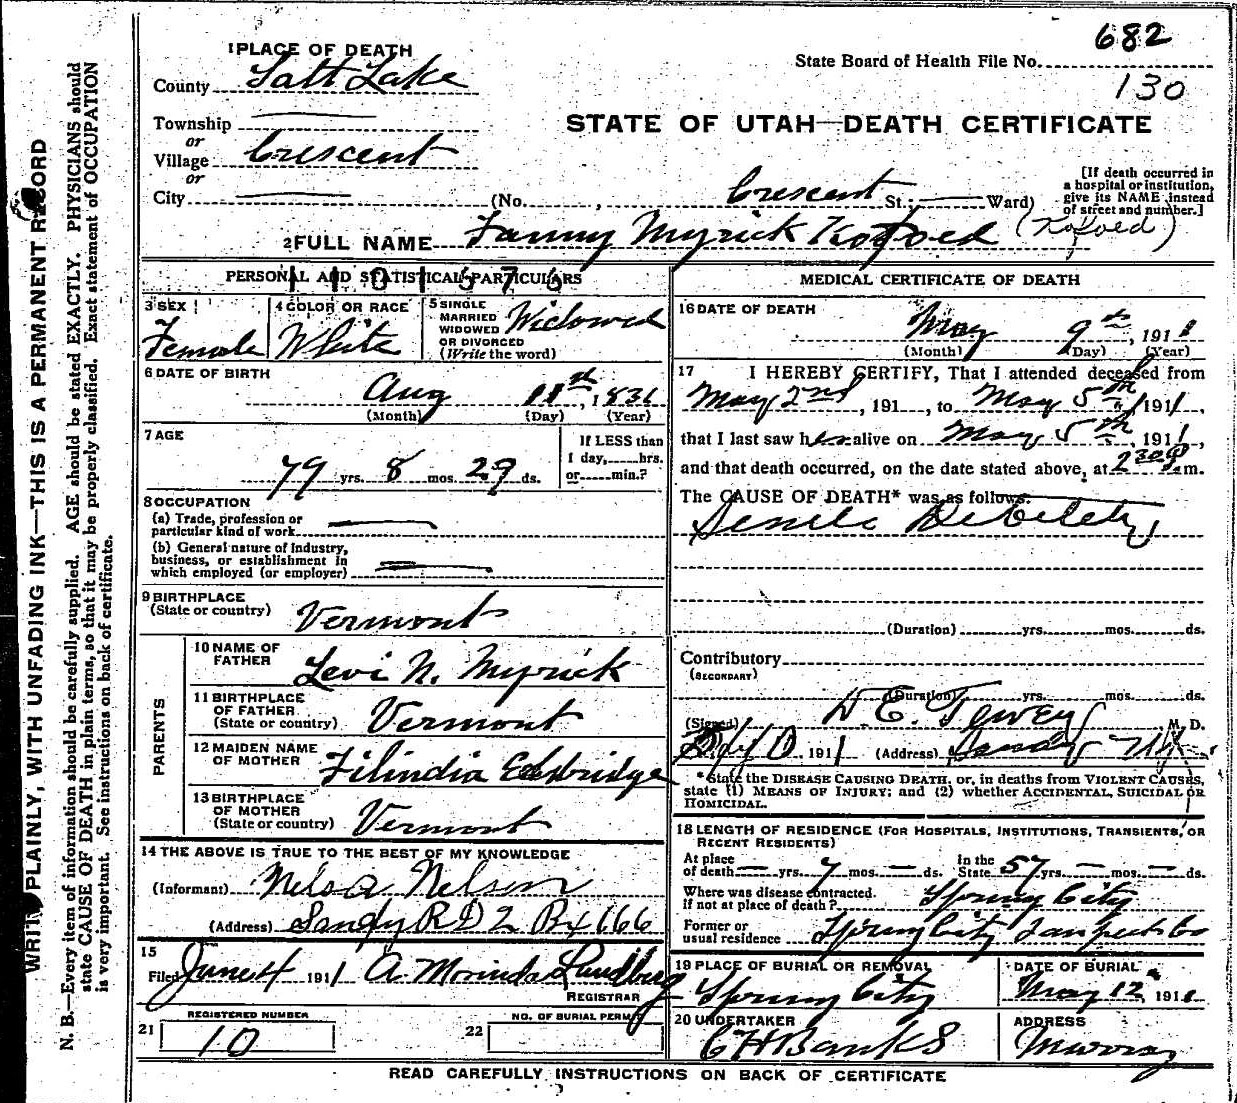 682
State Board of Health File No.
130
1 PLACE OF DEATH
County Salt Lake
STATE OF UTAH—DEATH CERTIFICATE
Township
or
Village Crescent
or
City (No. , Crescent St.; Ward)
[If death occurred in
a hospital or institution,
give its NAME instead
of street and number.]
2 FULL NAME Fanny Myrick Kofoed (Kofoed)
PERSONAL AND STATISTICAL PARTICULARS
1101676
3 SEX
Female
4 COLOR OR RACE
White
5 SINGLE
MARRIED
WIDOWED
OR DIVORCED
(Write the word)
Widowed
6 DATE OF BIRTH
Aug 11st, 1831
(Month) (Day) (Year)
7 AGE
79 yrs. 8 mos. 29 ds.
If LESS than
1 day, hrs.
or min.?
8 OCCUPATION
(a) Trade, profession or
particular kind of work
(b) General nature of industry,
business, or establishment in
which employed (or employer)
9 BIRTHPLACE
(State or country) Vermont
PARENTS
10 NAME OF
FATHER Levi N. Myrick
11 BIRTHPLACE
OF FATHER
(State or country) Vermont
12 MAIDEN NAME
OF MOTHER Filindia Eldridge
13 BIRTHPLACE
OF MOTHER
(State or country) Vermont
14 THE ABOVE IS TRUE TO THE BEST OF MY KNOWLEDGE
(Informant) Nelsa Nelson
(Address) Sandy R D 2 Bx 166
15
Filed June 4 1911 A Morinda Lundberg
REGISTRAR
21 REGISTERED NUMBER
10
22 NO. OF BURIAL PERMIT
MEDICAL CERTIFICATE OF DEATH
16 DATE OF DEATH
May 9th, 1911
(Month) (Day) (Year)
17 I HEREBY CERTIFY, That I attended deceased from
May 2nd, 191 , to May 5th, 1911,
that I last saw her alive on May 5th, 1911,
and that death occurred, on the date stated above, at 230 P.m.
The CAUSE OF DEATH* was as follows:
Senile Debility
(Duration) yrs. mos. ds.
Contributory
(SECONDARY)
(Duration) yrs. mos. ds.
(Signed) M. D.
1911 (Address) Sandy
*State the DISEASE CAUSING DEATH, or, in deaths from VIOLENT CAUSES,
state (1) MEANS OF INJURY; and (2) whether ACCIDENTAL, SUICIDAL OR
HOMICIDAL.
18 LENGTH OF RESIDENCE (FOR HOSPITALS, INSTITUTIONS, TRANSIENTS, OR
RECENT RESIDENTS)
At place
of death — yrs. 7 mos. — ds.
In the
State 57 yrs. — mos. — ds.
Where was disease contracted,
if not at place of death? Spring City
Former or
usual residence Spring City Sanpete Co
19 PLACE OF BURIAL OR REMOVAL
Spring City
DATE OF BURIAL
May 12, 1911
20 UNDERTAKER
C H Banks
ADDRESS
Murray
READ CAREFULLY INSTRUCTIONS ON BACK OF CERTIFICATE
WRITE PLAINLY, WITH UNFADING INK—THIS IS A PERMANENT RECORD
N. B.—Every item of information should be carefully supplied. AGE should be stated EXACTLY. PHYSICIANS should
state CAUSE OF DEATH in plain terms, so that it may be properly classified. Exact statement of OCCUPATION
is very important. See instructions on back of certificate.